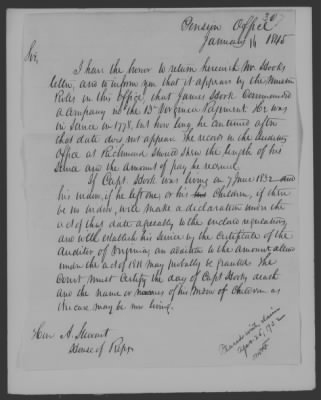 307
Pension Office
January 14 1845
Sir,
I have the honor to return herewith Mr. Hook's
letter, and to inform you that it appears by the Muster
Rolls in this office, that James Hook Commanded
a Company in the 13th Virginia Regiment. He was
in Service in 1778, but how long he continued after
that date does not appear. The records in the Auditor's
Office at Richmond should show the length of his
Service and the amount of pay he received.
If Capt. Hook was living on 7 June 1832
his widow, if he left one, or his Children, if there
be no widow, will make a declaration under the
act of that date agreeably to the enclosed regulations,
and will establish his Service by the Certificate of the
Auditor of Virginia, an addition to the amount allowed
under the act of 1828 may probably be granted. The
Court must Certify the day of Capt Hook's death
and the name or names of his Widow or Children as
the case may be now living.
Hon A. Stewart
House of Reps.
Placed with claim
Apr. 26, 1932